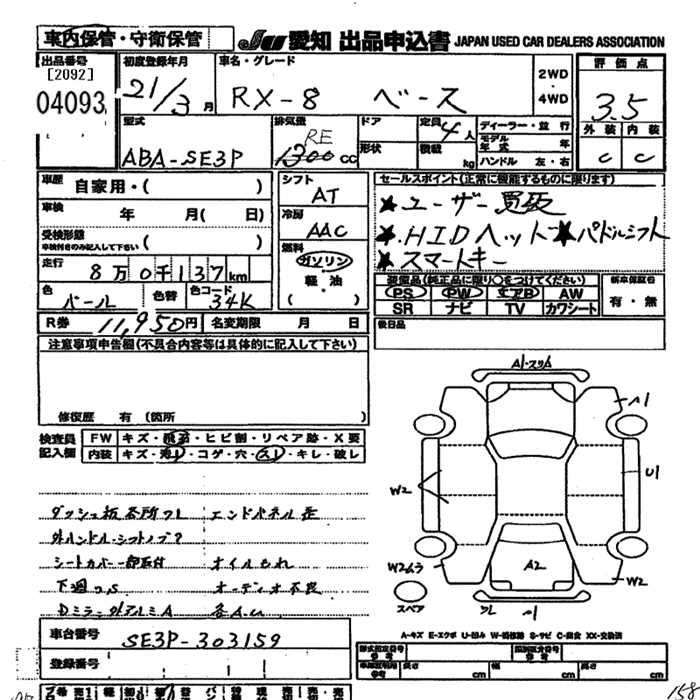 車内保管・守衛保管 JU 愛知 出品申込書 JAPAN USED CAR DEALERS ASSOCIATION
出品番号 [2092] 04093
初度登録年月 21/3月
車名・グレード RX-8 ベース
2WD・4WD
評価点 3.5
外装 内装
C C
型式 ABA-SE3P
排気量 RE 1300 cc
ドア
形状
定員 4人
積載 kg
ディーラー・並行
モデル年式 年
ハンドル 左・右
車歴 自家用・( )
車検 年 月( 日)
受検形態 ( )
車検付きのみ記入して下さい
走行 8万0千137km
色 パール 色替 色コード 34K
R券 11,950円 名変期限 月 日
シフト AT
冷房 AAC
燃料 ガソリン・軽・油
セールスポイント(正常に機能するものに限ります)
★ユーザー買取
★HIDヘッド ★パドルシフト
★スマートキー
装備品(純正品に限り○をつけてください)
PS PW エアB AW
SR ナビ TV カワシート
新車保証書 有・無
後日品
注意事項申告欄(不具合内容等は具体的に記入して下さい)
修復歴 有 (箇所
検査員記入欄
FW キズ・飛石・ヒビ割・リペア跡・X要
内装 キズ・汚レ・コゲ・穴・スレ・キレ・破レ
エンドパネル
外ハンドル・シフトノブ
シートカバー一部取付 オイルもれ
オーディオ不良
車台番号 SE3P-303159
登録番号
A1
W2
U1
W2
A2
W2
スペア
A-キズ E-エクボ U-凹み W-補修跡 S-サビ C-腐食 XX-交換済
型式指定番号 参考
類別区分番号 参考
長さ cm 幅 cm 高さ cm
158